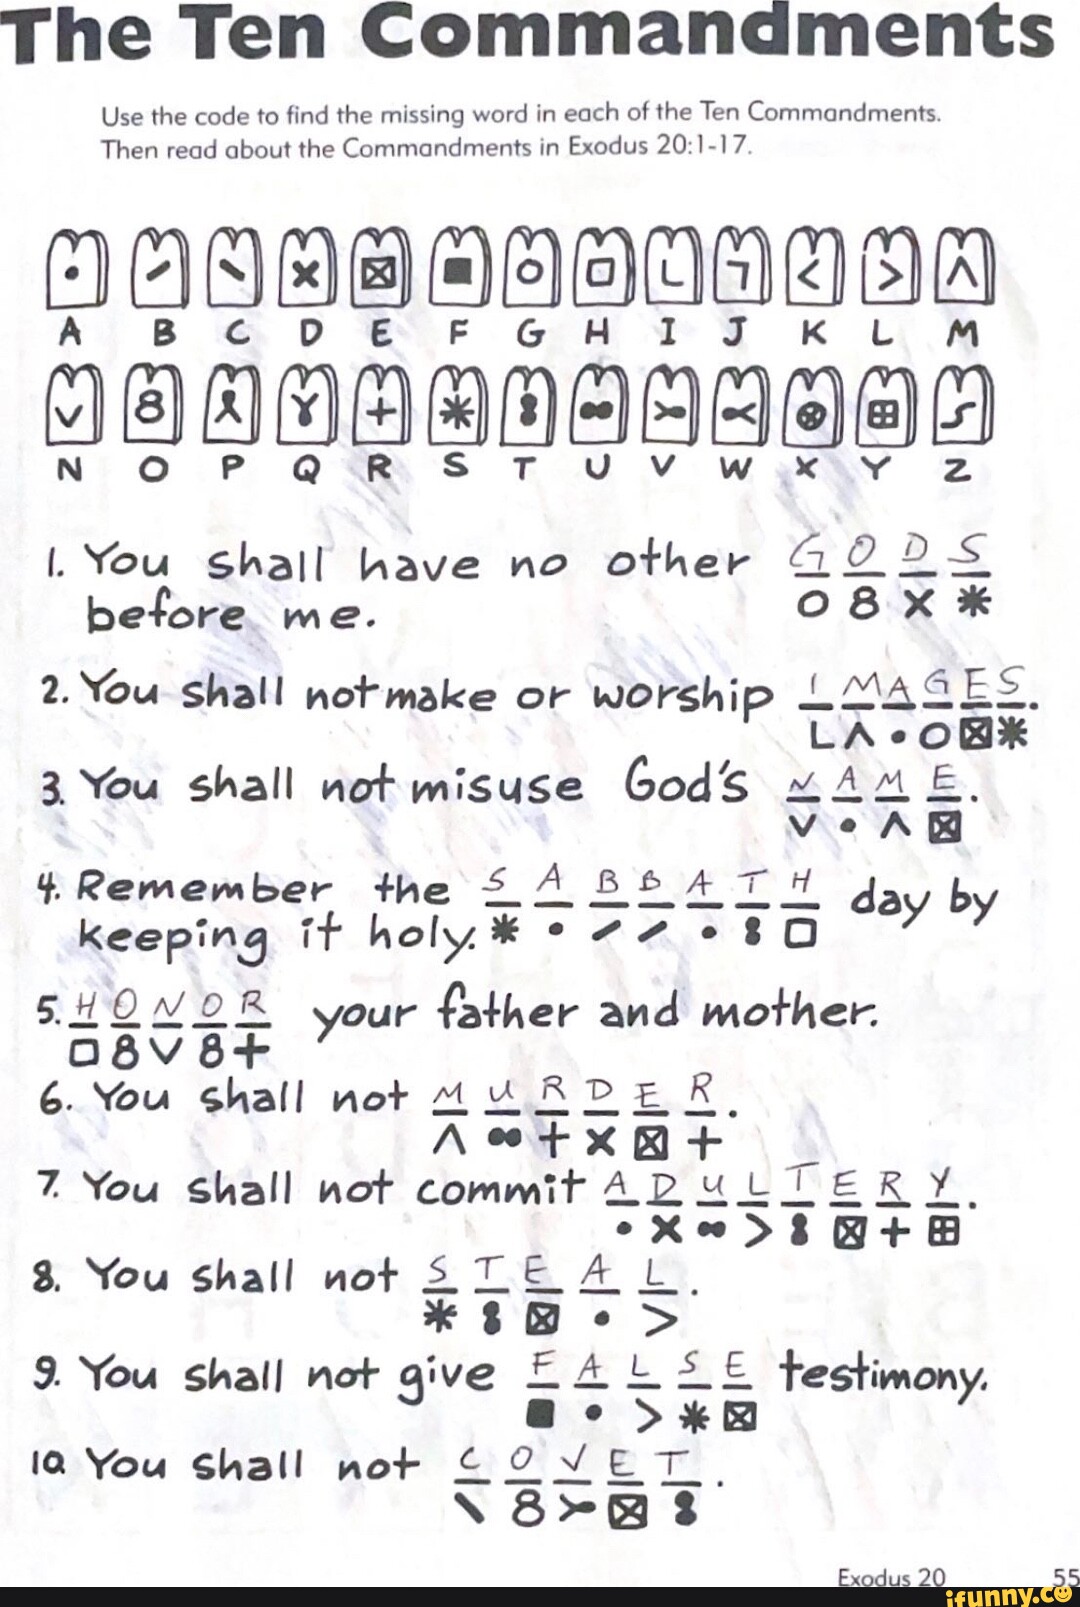 The Ten Commandments
Use the code to find the missing word in each of the Ten Commandments.
Then read about the Commandments in Exodus 20:1-17.
A B C D E F G H I J K L M
N O P Q R S T U V W X Y Z
1. You shall have no other GODS
before me.
2. You shall not make or worship IMAGES.
3. You shall not misuse God's NAME.
4. Remember the SABBATH day by
keeping it holy.
5. HONOR your father and mother.
6. You shall not MURDER.
7. You shall not commit ADULTERY.
8. You shall not STEAL.
9. You shall not give FALSE testimony.
10. You shall not COVET.
Exodus 20 55
ifunny.co